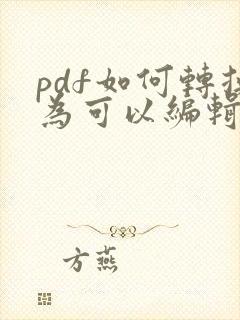 pdf如何轉
為可以編輯
方燕